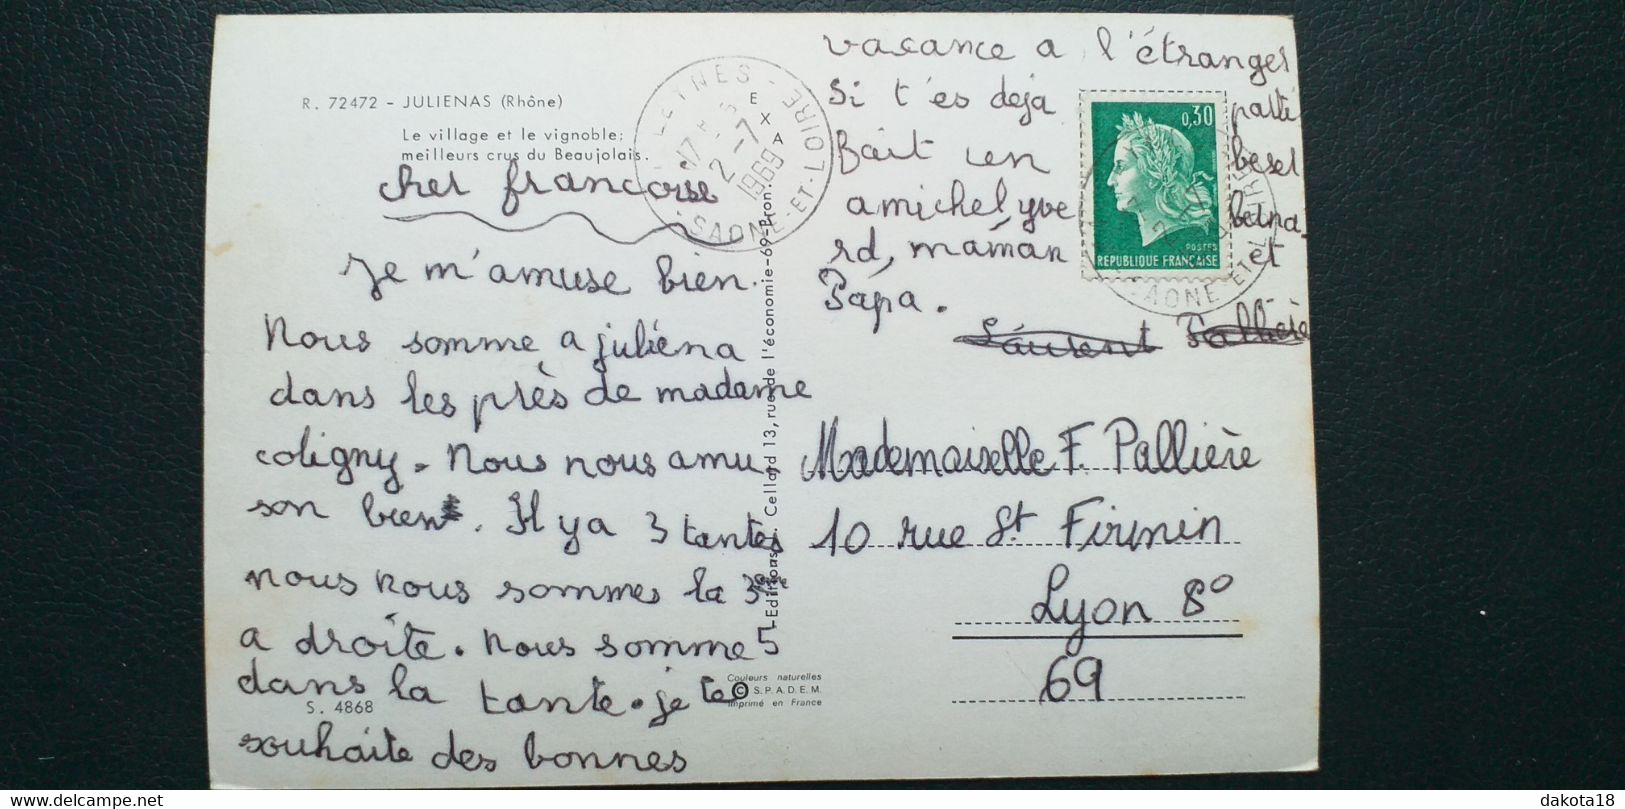 R. 72472 - JULIENAS (Rhône)
Le village et le vignoble:
meilleurs crus du Beaujolais.
cher francoise
Je m'amuse bien.
Nous somme a juliéna
dans les près de madame
coligny. Nous nous amu
son bien. Il y a 3 tantes
nous nous sommes la 3ème
a droite. Nous somme 5
dans la tante. je te
souhaite des bonnes
S. 4868
vacance a l'étranger
Si t'es deja parti
fait un beset
a michel yve berna
rd, maman et
Papa.
Laurent Pallière
LEYNES
17 H
2-7
1969
SAONE-ET-LOIRE
0,30
POSTES
REPUBLIQUE FRANÇAISE
SAONE-ET-LOIRE
Editions Cellard 13, rue de l'économie-69-Bron.
EXA
Mademaiselle F. Pallière
10 rue St Firmin
Lyon 8°
69
Couleurs naturelles
© S.P.A.D.E.M.
Imprimé en France
dakota18